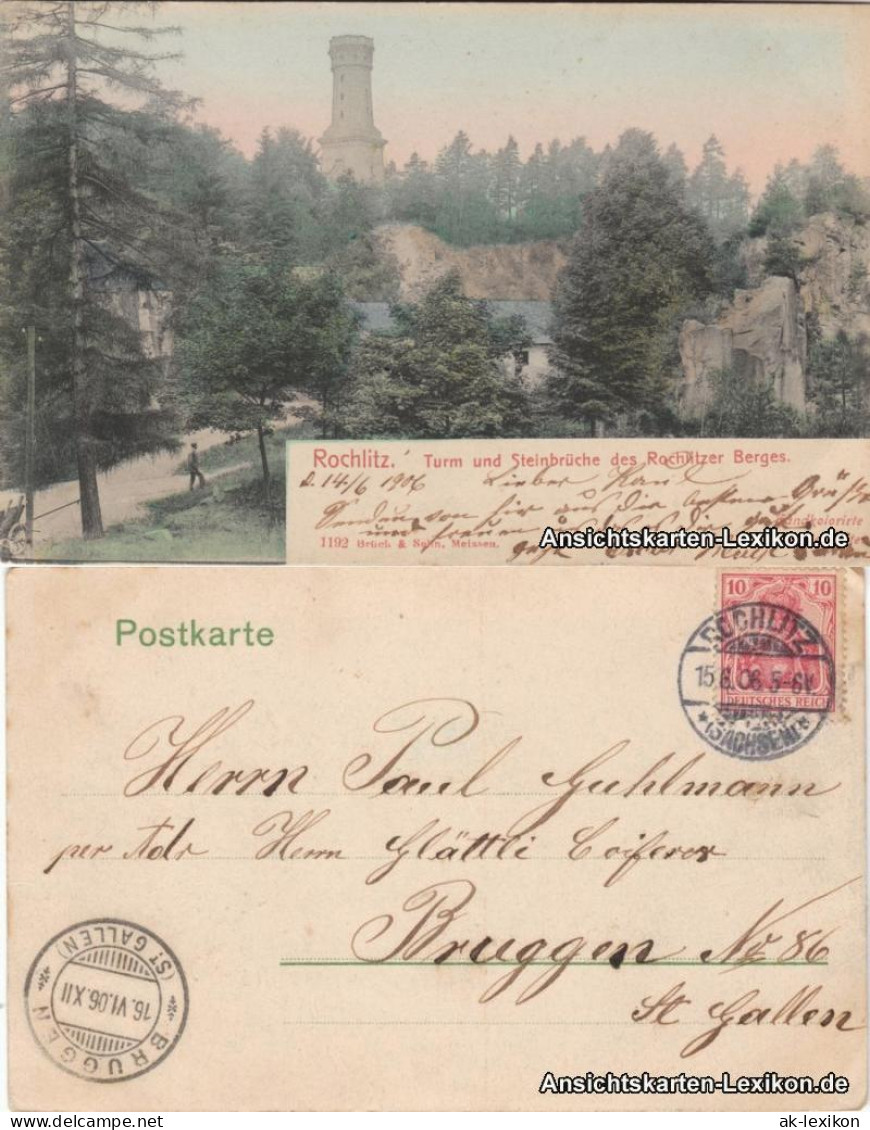 Rochlitz. Turm und Steinbrüche des Rochlitzer Berges.
D. 14/6 1906 Lieber Paul
Sendung von hir aus die besten Grüße
und freuen
Handkolorierte
1192 Brück & Sohn, Meissen.
Ansichtskarten-Lexikon.de
Postkarte
10 10
DEUTSCHES REICH
ROCHLITZ
15.6.06.5-6N.
*(SACHSEN)*
Herrn Paul Guhlmann
per Adr Herrn Glättli Coiferor
Bruggen No 86
St Gallen
BRUGGEN
(ST GALLEN)
16.VI.06.XII
Ansichtskarten-Lexikon.de
ak-lexikon